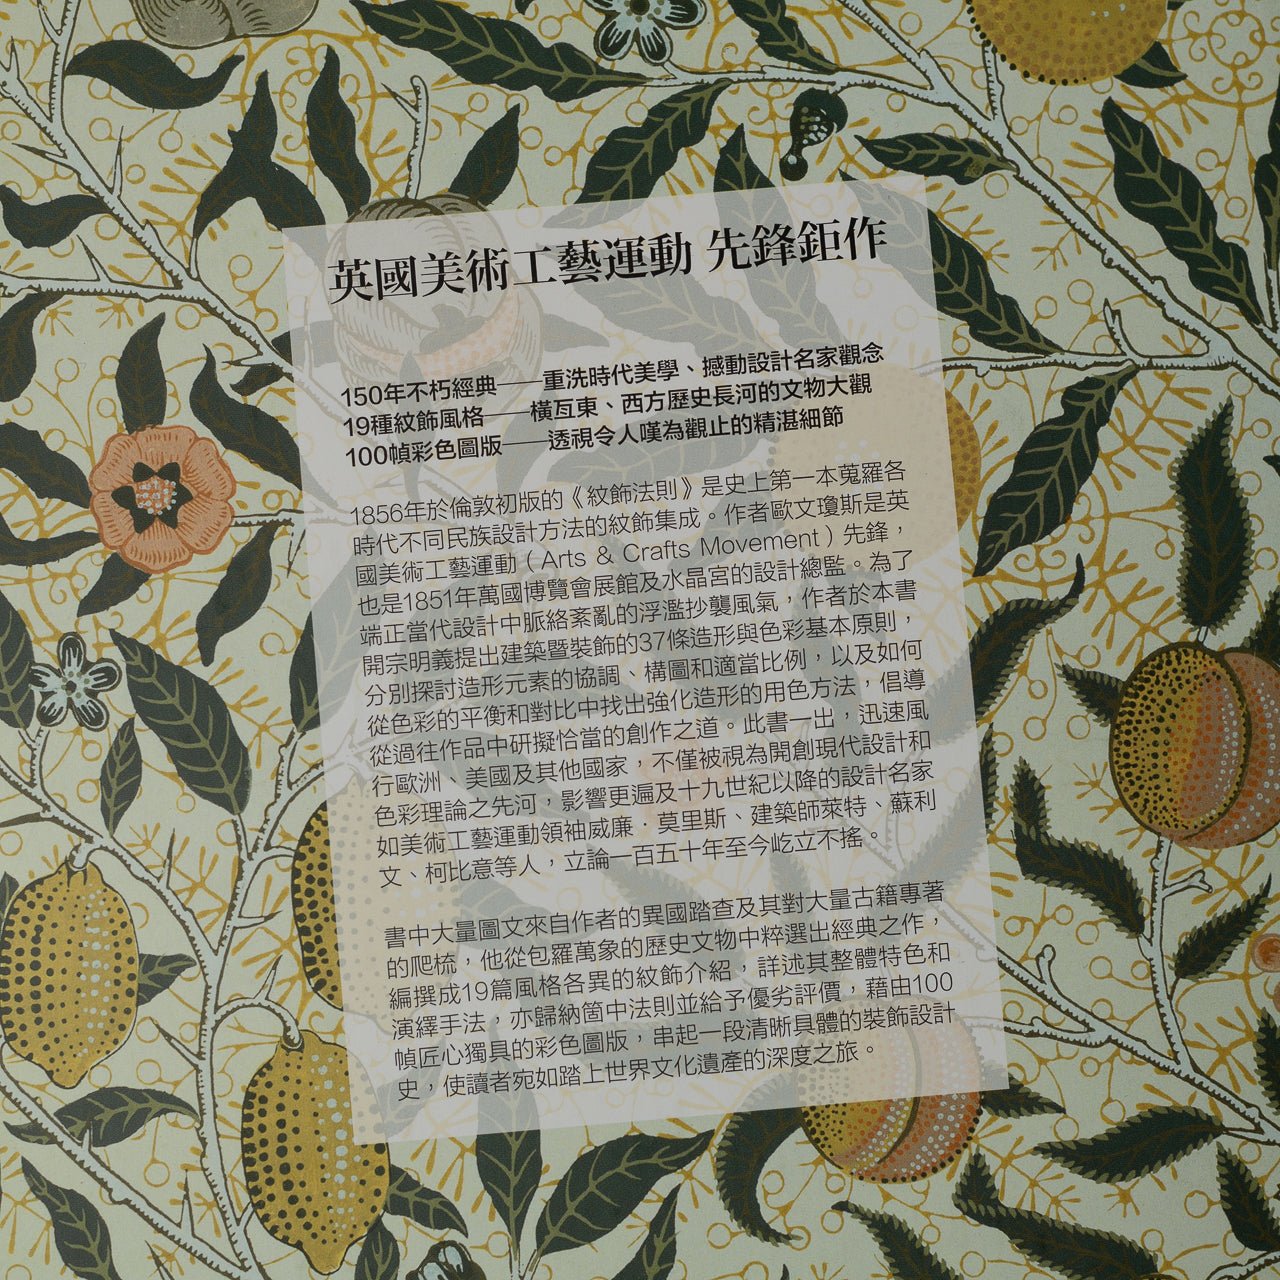 英國美術工藝運動 先鋒鉅作
150年不朽經典——重洗時代美學、撼動設計名家觀念
19種紋飾風格——橫亙東、西方歷史長河的文物大觀
100幀彩色圖版——透視令人嘆為觀止的精湛細節
1856年於倫敦初版的《紋飾法則》是史上第一本蒐羅各
時代不同民族設計方法的紋飾集成。作者歐文瓊斯是英
國美術工藝運動（Arts & Crafts Movement）先鋒，
也是1851年萬國博覽會展館及水晶宮的設計總監。為了
端正當代設計中脈絡紊亂的浮濫抄襲風氣，作者於本書
開宗明義提出建築暨裝飾的37條造形與色彩基本原則，
分別探討造形元素的協調、構圖和適當比例，以及如何
從色彩的平衡和對比中找出強化造形的用色方法，倡導
從過往作品中研擬恰當的創作之道。此書一出，迅速風
行歐洲、美國及其他國家，不僅被視為開創現代設計和
色彩理論之先河，影響更遍及十九世紀以降的設計名家
如美術工藝運動領袖威廉．莫里斯、建築師萊特、蘇利
文、柯比意等人，立論一百五十年至今屹立不搖。
書中大量圖文來自作者的異國踏查及其對大量古籍專著
的爬梳，他從包羅萬象的歷史文物中粹選出經典之作，
編撰成19篇風格各異的紋飾介紹，詳述其整體特色和
演繹手法，亦歸納箇中法則並給予優劣評價，藉由100
幀匠心獨具的彩色圖版，串起一段清晰具體的裝飾設計
史，使讀者宛如踏上世界文化遺產的深度之旅。